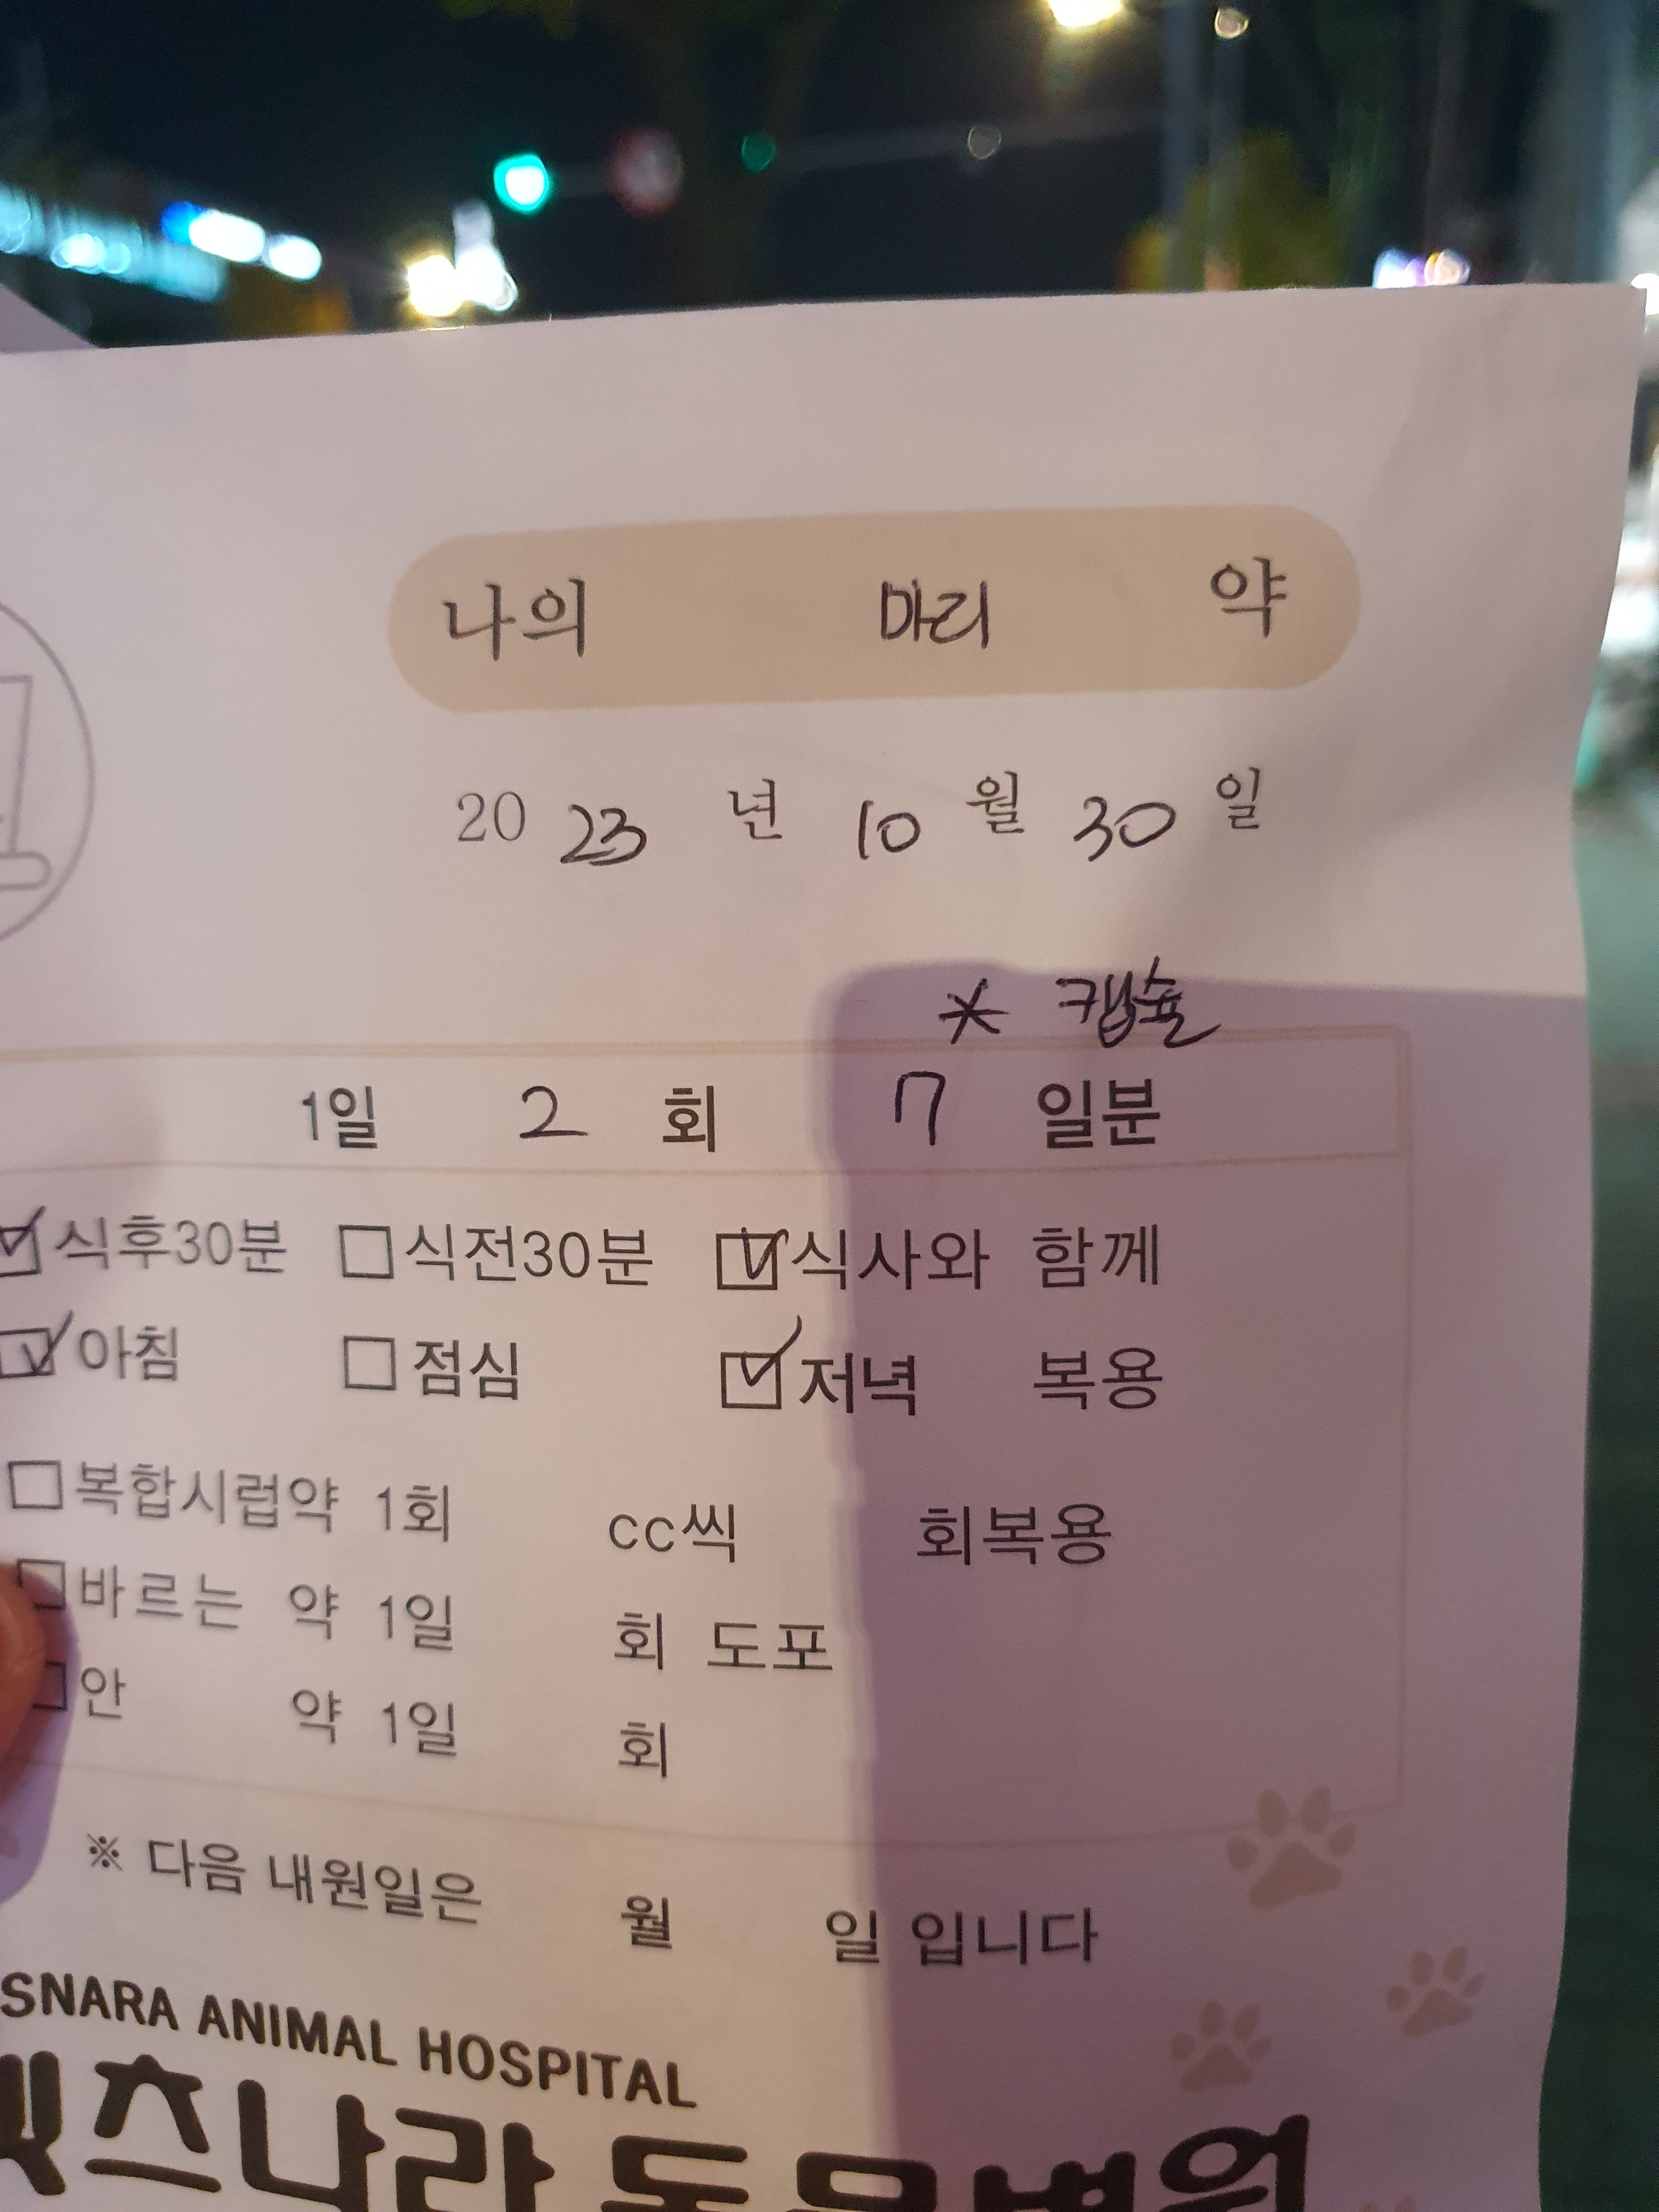 나의 마리 약
2023년 10월 30일
* 캡슐
1일 2회 7일분
☑식후30분 ☐식전30분 ☑식사와 함께
☑아침 ☐점심 ☑저녁 복용
☐복합시럽약 1회 cc씩 회복용
☐바르는 약 1일 회 도포
☐안 약 1일 회
※ 다음 내원일은 월 일 입니다
SNARA ANIMAL HOSPITAL
펫츠나라 동물병원